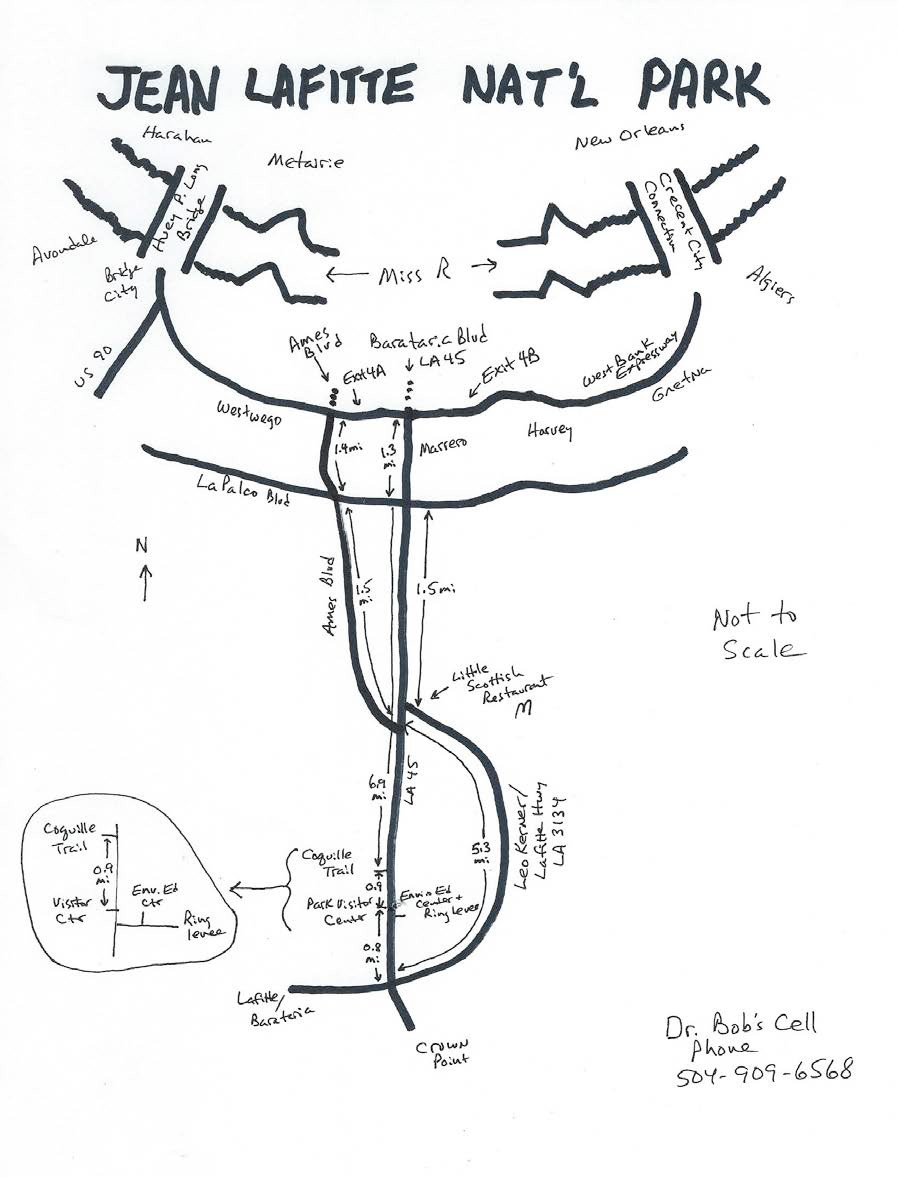 JEAN LAFITTE NAT'L PARK
Harahan
New Orleans
Metairie
Huey P. Long
Bridge
Crescent City
Connection
Avondale
Bridge
City
Miss R
Algiers
US 90
Ames
Blvd
Barataria Blvd
LA 45
Exit 4A
Exit 4B
West Bank
Expressway
Gretna
Westwego
1.4mi
1.3
mi
Marrero
Harvey
LaPalco Blvd
N
Ames Blvd
1.5
mi
1.5mi
Not to
Scale
Little
Scottish
Restaurant
M
6.9
mi
LA 45
5.3
mi
Leo Kerner/
Lafitte Hwy
LA 3134
Coquille
Trail
0.9
mi
Visitor
Ctr
Env. Ed
Ctr
Ring
levee
Coquille
Trail
0.9
Park Visitor
Center
Enviro Ed
Center +
Ring levee
0.8
mi
Lafitte/
Barateria
Crown
Point
Dr. Bob's Cell
Phone
504-909-6568